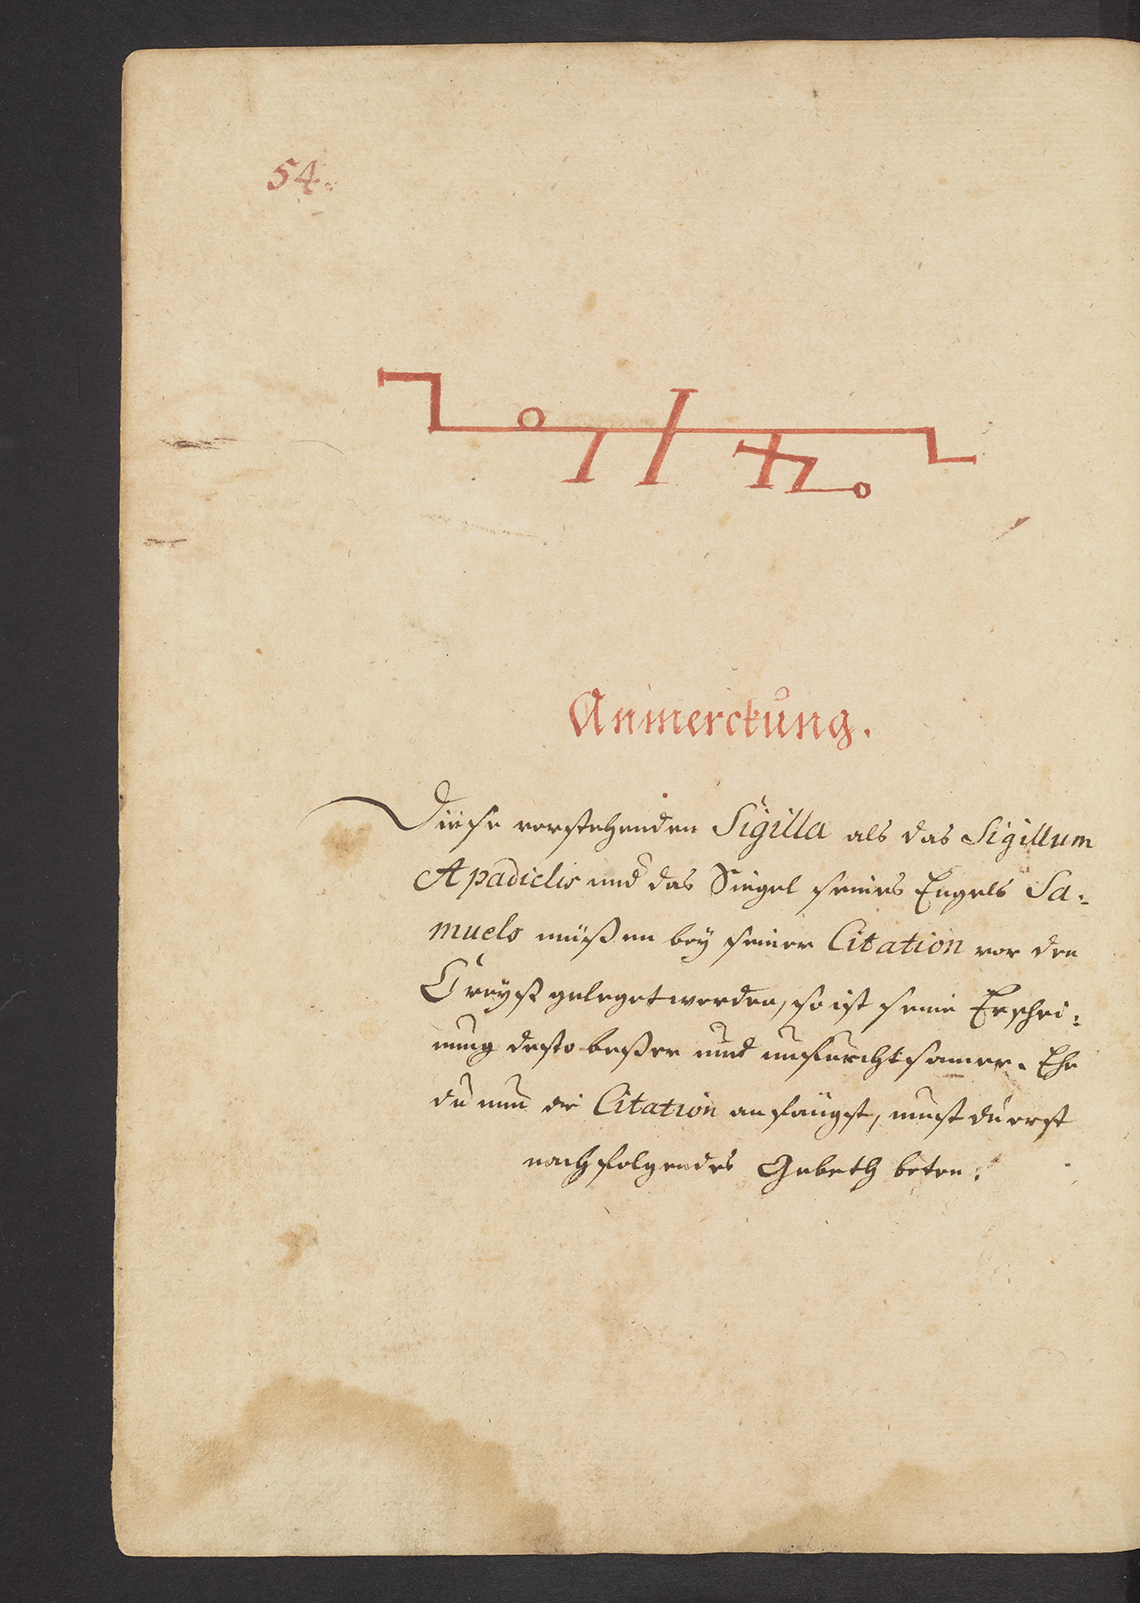 54.
Anmerckung.
Diese vorstehenden Sigilla als das Sigillum
Apadielis und das Siegel seines Engels Sa:
muels müßen beÿ seiner Citation vor den
Creÿß geleget werden, so ist seine Erschei:
nung desto beßer und unfurchtsamer. Ehe
du nun die Citation anfängst, must du erst
nachfolgendes Gebeth beten: